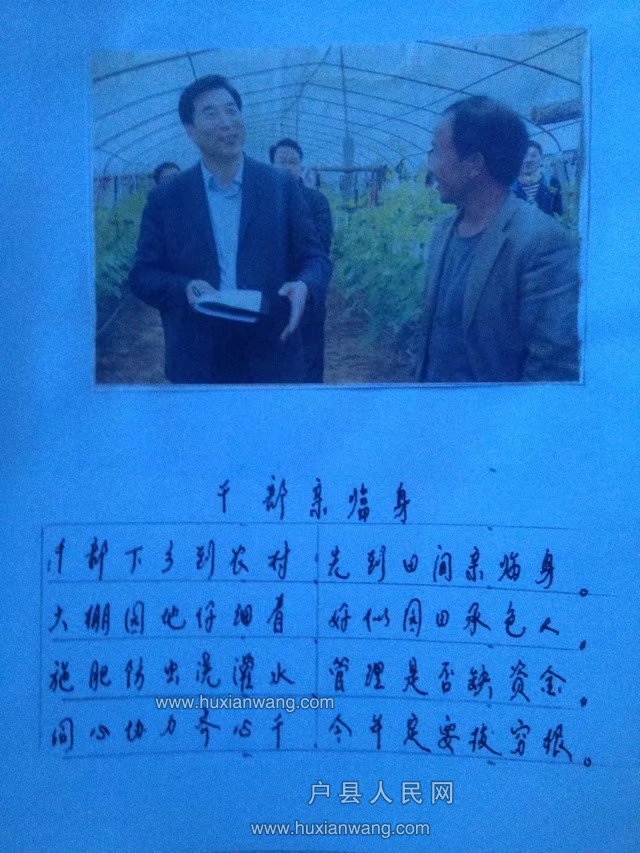 干部亲临身
干部下乡到农村 先到田间亲临身。
大棚园他仔细看 好似园田承包人。
施肥防虫浇灌水 管理是否缺资金。
www.huxianwang.com
同心协力齐心干 今年定要拔穷根。
户县人民网
www.huxianwang.com